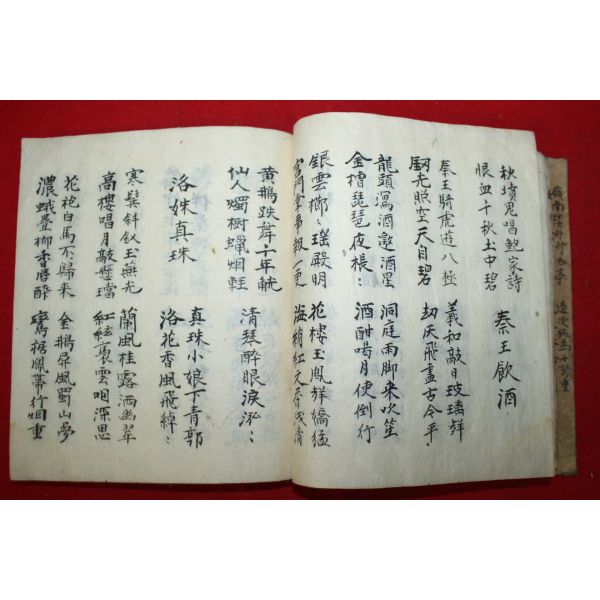 秋墳鬼唱鮑家詩
恨血千秋土中碧
秦王飲酒
秦王騎虎遊八極 羲和敲日玻璃聲
釖光照空天自碧 劫灰飛盡古今平〻
龍頭瀉酒邀酒星 洞庭雨脚來吹笙
金槽琵琶夜棖〻 酒酣喝月使倒行
銀雲櫛〻瑤殿明 花樓玉鳳聲嬌猛
宮門掌事報一更 海綃紅文香浅清
黃鵝跌舞千年觥
仙人燭樹蠟烟輕 清琴醉眼淚泓〻
洛姝真珠
真珠小娘下青郭
洛花香風飛綽〻
寒鬢斜釵玉燕光 蘭風桂露洒幽翠
高樓唱月敲懸璫 紅絃裊雲咽深思
花袍白馬不歸来 金鵝屏風蜀山夢
濃蛾疊柳香唇醉 鸞裾鳳帶行烟重